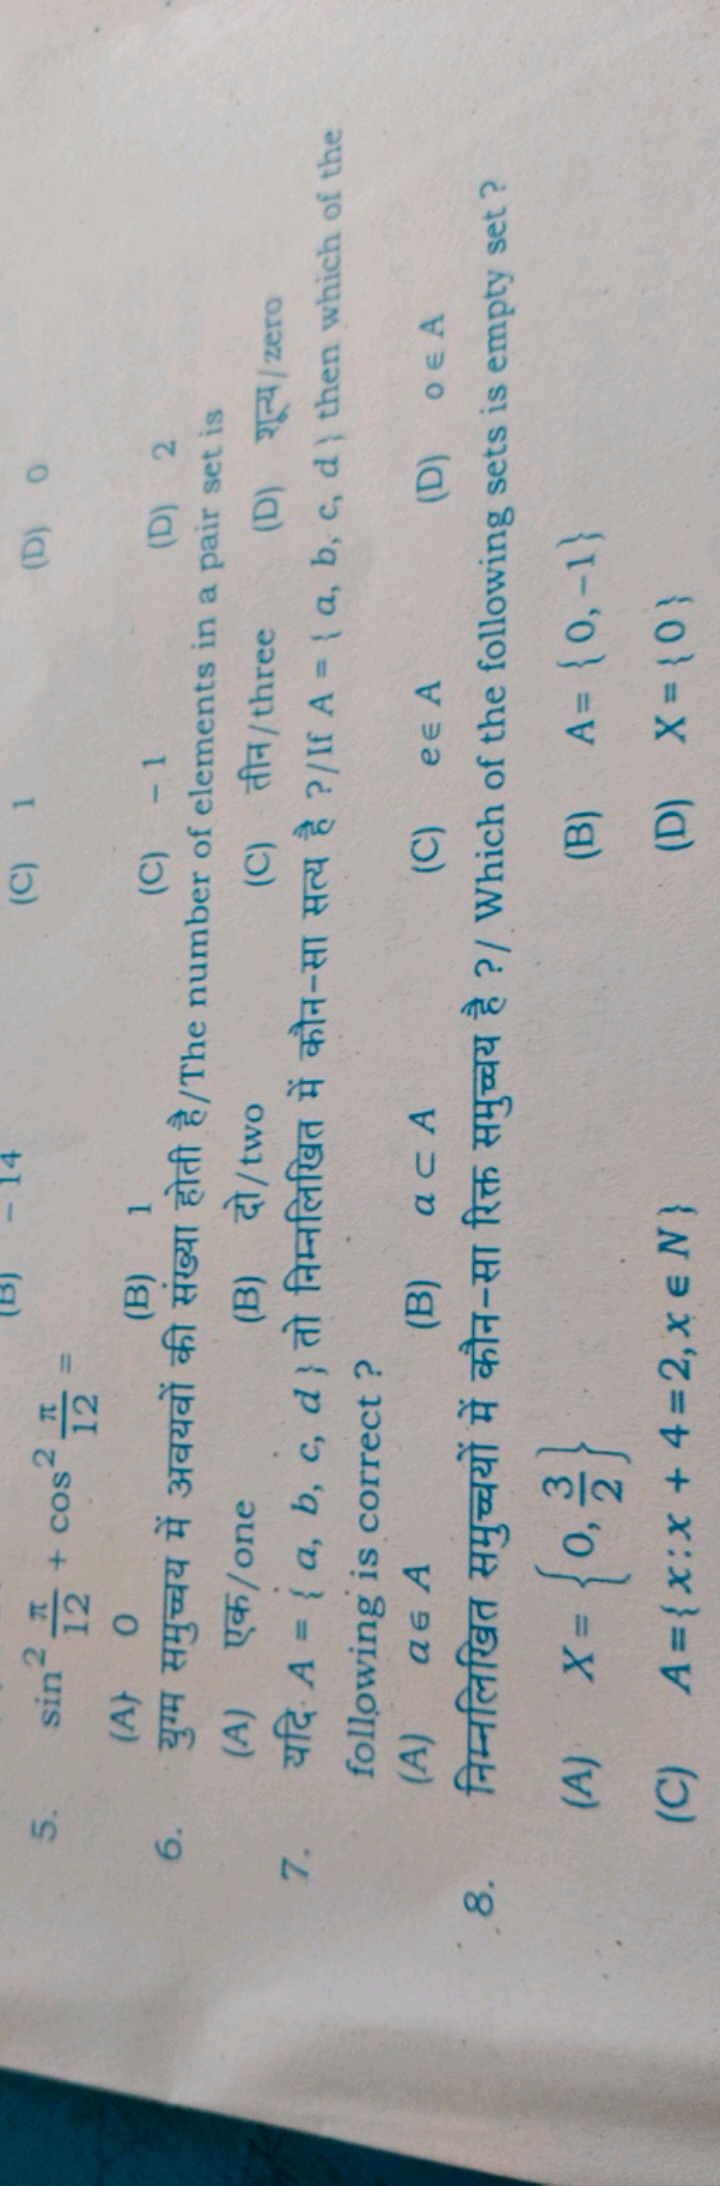 (B) - 14 (C) 1 (D) 0
5. sin² π/12 + cos² π/12 =
(A) 0 (B) 1 (C) - 1 (D) 2
6. युग्म समुच्चय में अवयवों की संख्या होती है/The number of elements in a pair set is
(A) एक/one (B) दो/two (C) तीन/three (D) शून्य/zero
7. यदि A = { a, b, c, d } तो निम्नलिखित में कौन-सा सत्य है ?/If A = { a, b, c, d } then which of the
following is correct ?
(A) a ∈ A (B) a ⊂ A (C) e ∈ A (D) o ∈ A
8. निम्नलिखित समुच्चयों में कौन-सा रिक्त समुच्चय है ?/ Which of the following sets is empty set ?
(A) X = {0, 3/2} (B) A = { 0, -1}
(C) A = { x : x + 4 = 2, x ∈ N } (D) X = { 0 }